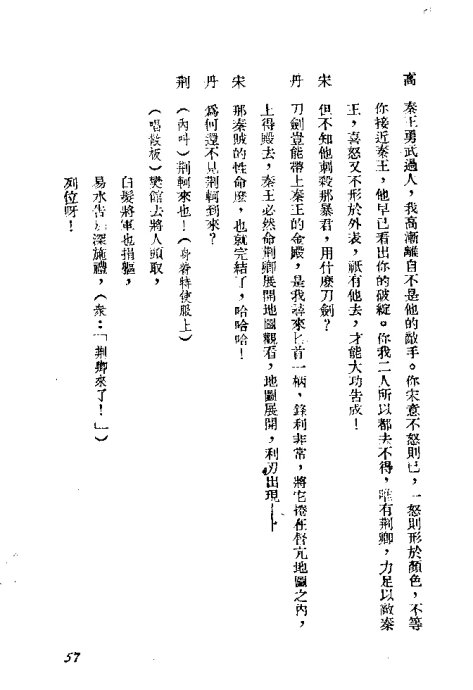 高　秦王勇武過人，我高漸離自不是他的敵手。你宋意不怒則已，一怒則形於顏色，不等
你接近秦王，他早已看出你的破綻。你我二人所以都去不得，唯有荆卿，力足以敵秦
王，喜怒又不形於外表，祇有他去，才能大功告成！
宋　但不知他刺殺那暴君，用什麼刀劍？
丹　刀劍豈能帶上秦王的金殿，是我尋來匕首一柄，鋒利非常，將它捲在督亢地圖之內，
上得殿去，秦王必然命荆卿展開地圖觀看，地圖展開，利刃出現——
宋　那秦賊的性命麼，也就完結了，哈哈哈！
丹　爲何還不見荆軻到來？
荆　（內叫）荆軻來也！（身着特使服上）
（唱散板）樊館去將人頭取，
白髮將軍也捐軀，
易水告 深施禮，（衆：「荆卿來了！」）
列位呀！
57